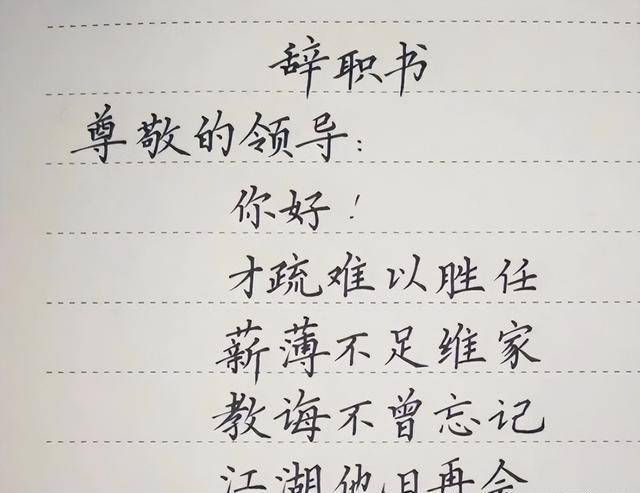 辞职书
尊敬的领导：
你好！
才疏难以胜任
薪薄不足维家
教诲不曾忘记
江湖他日再会